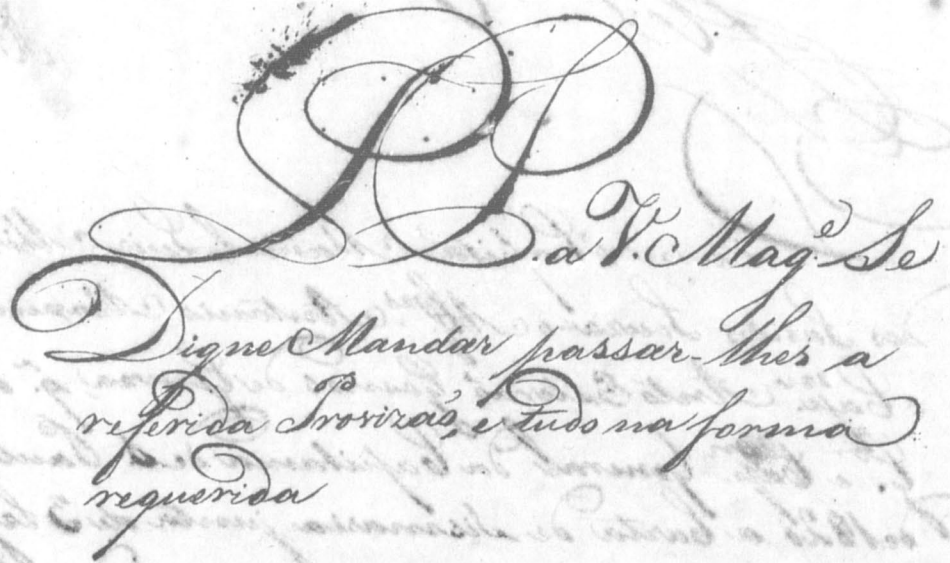 PP. a V. Mag.e Se
Digne Mandar passar-lhes a
referida Provizaõ, e tudo na forma
requerida